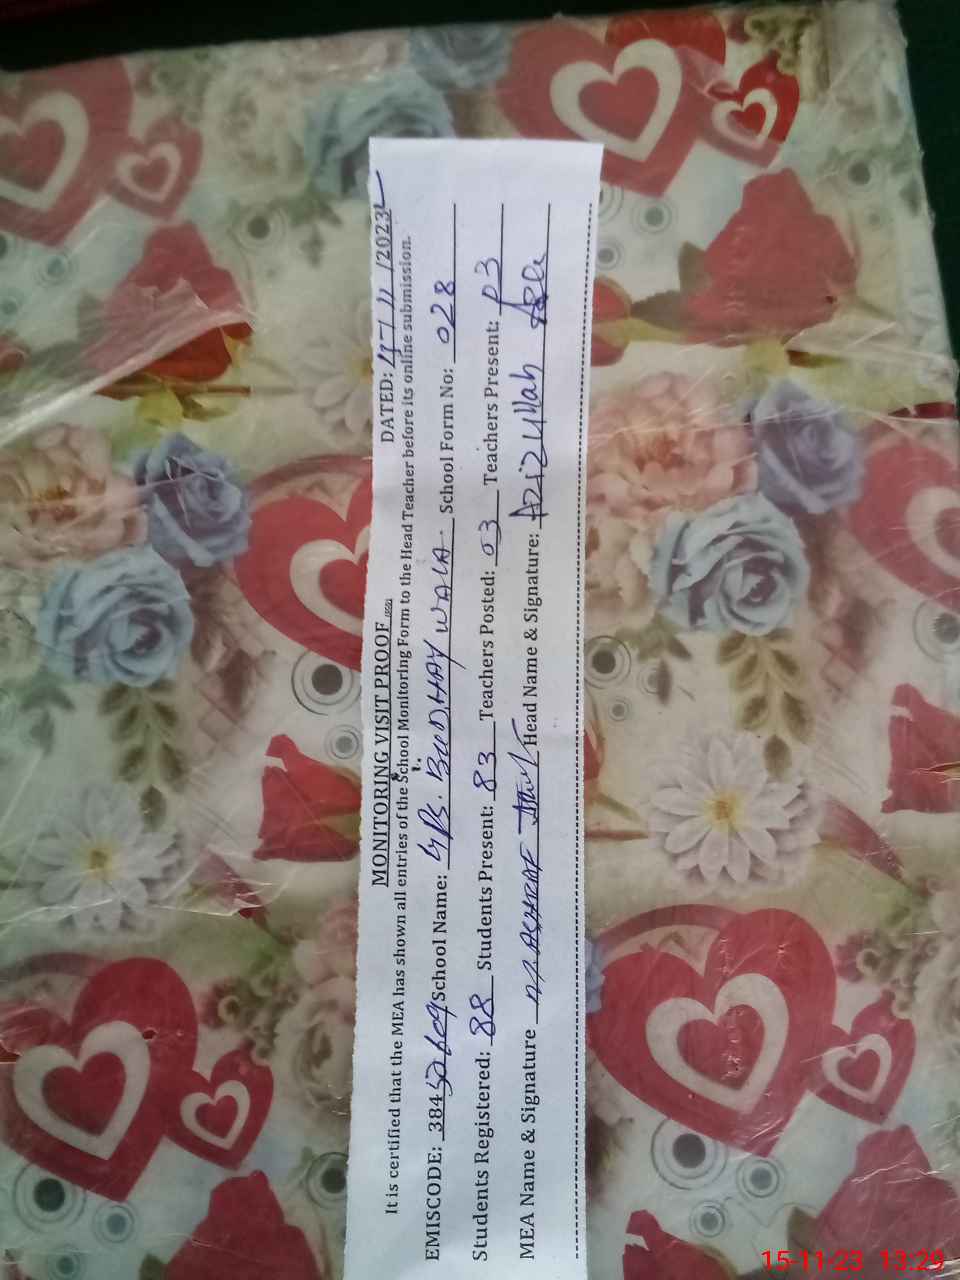 MONITORING VISIT PROOF
DATED: 11/2023
It is certified that the MEA has shown all entries of the School Monitoring Form to the Head Teacher before its online submission.
EMISCODE: 384 School Name: BUDHAY WALA School Form No: 028
Students Registered: 88 Students Present: 83 Teachers Posted: 03 Teachers Present: 03
MEA Name & Signature ASHRAF Head Name & Signature: Azizullah
15-11-23 13:29